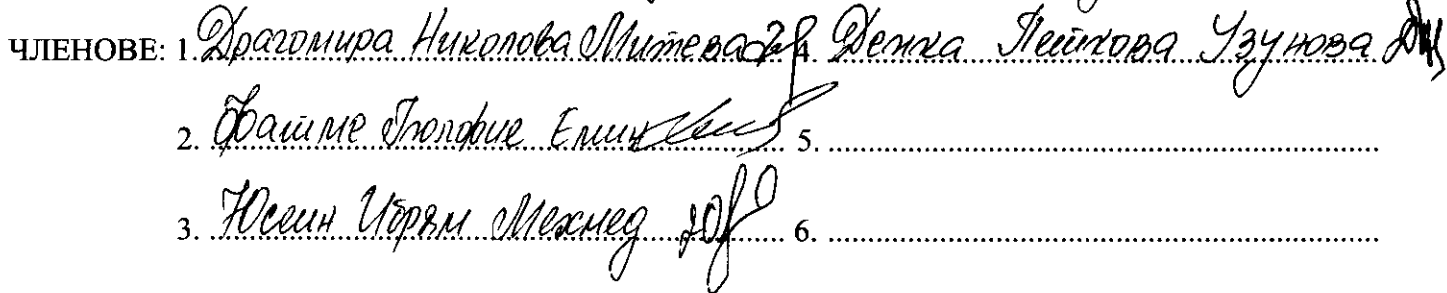 ЧЛЕНОВЕ: 1. Драгомира Николова Митева 4. Денка Пейкова Узунова
2. Фатме Емин 5.
3. Юсеин Ибрям Мехмед 6.